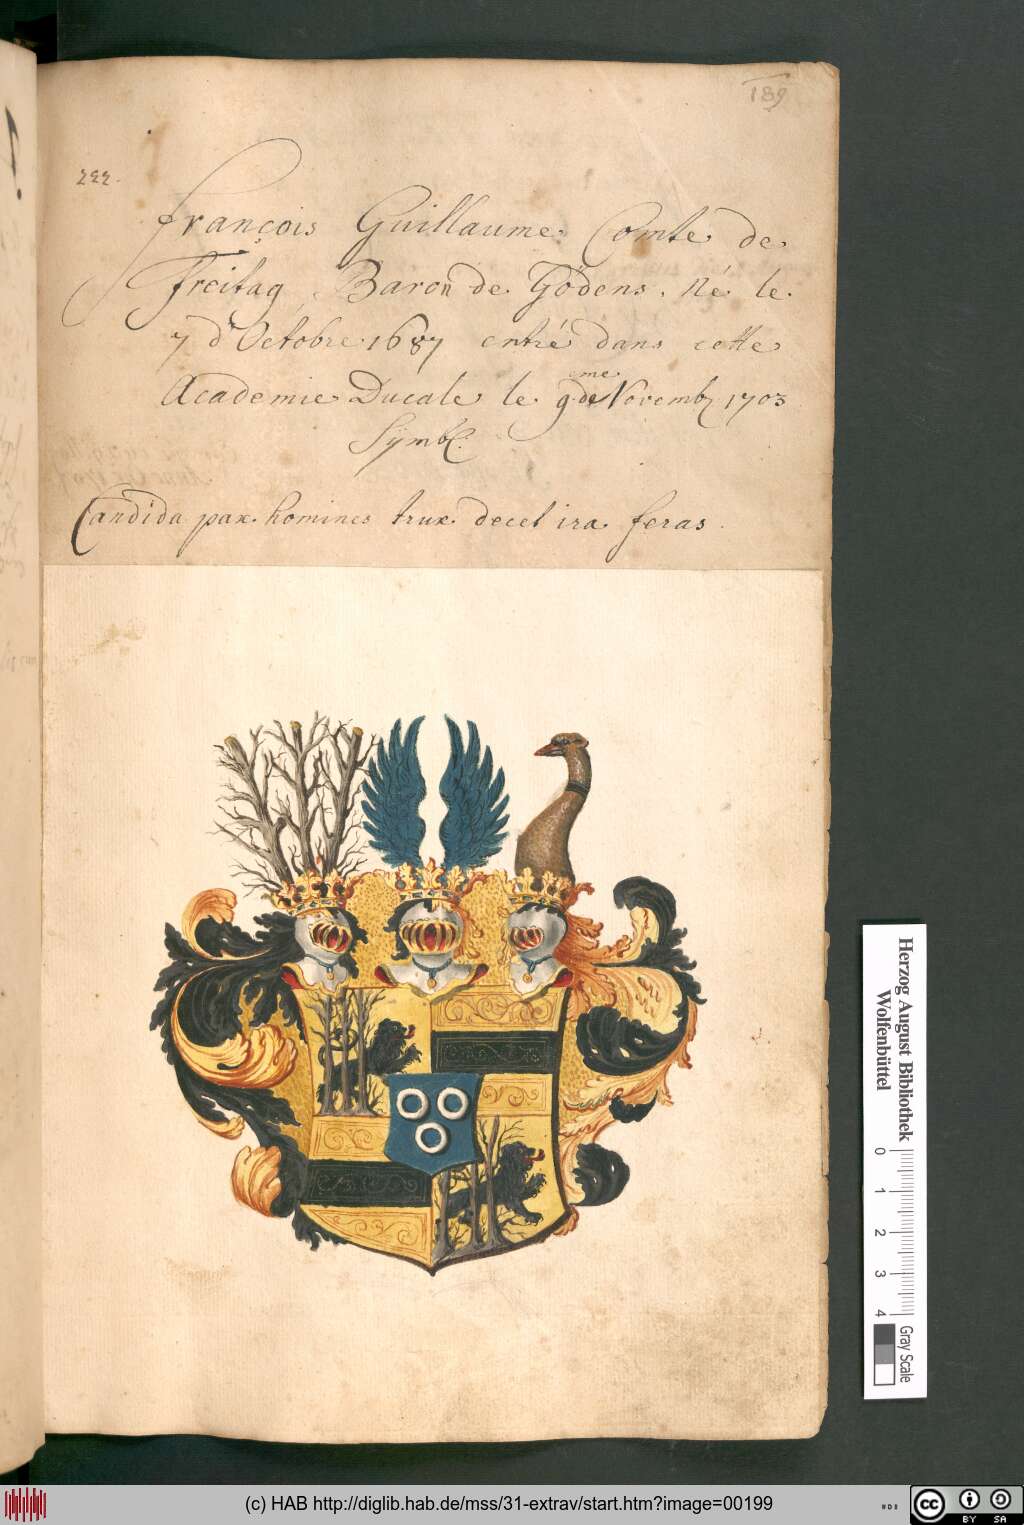 189
222.
François Guillaume Comte de
Freitag, Baron de Gödens. Né le
7 d'Octobre 1687 entré dans cette
Academie Ducale le 9.me de Novemb 1703
Symb.
Candida pax homines trux decet ira feras.
Herzog August Bibliothek
Wolfenbüttel
0 1 2 3 4
Gray Scale
(c) HAB http://diglib.hab.de/mss/31-extrav/start.htm?image=00199
cc BY SA